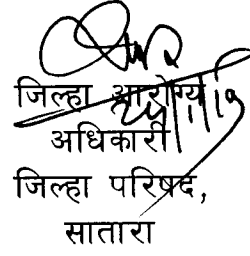 जिल्हा आरोग्य
अधिकारी
जिल्हा परिषद,
सातारा